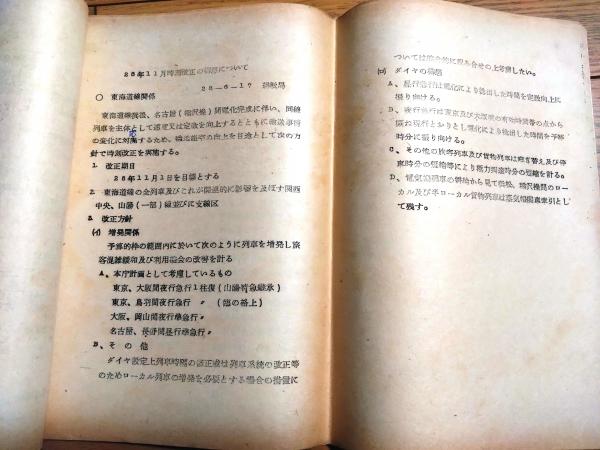 28年11月時刻改正の構想について
28-6-17 運転局
○ 東海道線関係
東海道線浜松、名古屋(稲沢)間電化完成に伴い、同線
列車を主体として速度又は定数を向上するとともに輸送事情
の変化に対応するため、輸送能率の向上を目途として次の方
針で時刻改正を実施する。
1. 改正期日
28年11月1日を目標とする
2. 東海道線の全列車及びこれが関連的に影響を及ぼす関西
中央、山陽(一部)線並びに支線区
3. 改正方針
(イ) 増発関係
予算的枠の範囲内に於いて次のように列車を増発し旅
客混雑緩和及び利用機会の改善を計る
A、本庁計画として考慮しているもの
東京、大阪間夜行急行1往復(山陽特急継承)
東京、鳥羽間夜行急行 〃 (臨の格上)
大阪、岡山間夜行準急行 〃
名古屋、長野間昼行準急行 〃
B、その他
ダイヤ設定上列車時隔の是正或は列車系統の改正等
のためローカル列車の増発を必要とする場合の措置に
ついては総合的に睨み合せの上考慮したい。
(ロ) ダイヤの構想
A、昼行急行は電化により捻出した時間を定数向上に
振り向ける。
B、夜行急行は東京及び大阪での有効時間帯の点から
概ね現行どおりとし電化により捻出した時間を予裕
時分に振り向ける。
C、その他の旅客列車及び貨物列車は機関車替え及び停
車時分の短縮等により極力到達時分の短縮を計る。
D、電気機関車の需給から見て浜松、稲沢機関のロー
カル及び準ローカル貨物列車は蒸気機関車牽引とし
て残す。